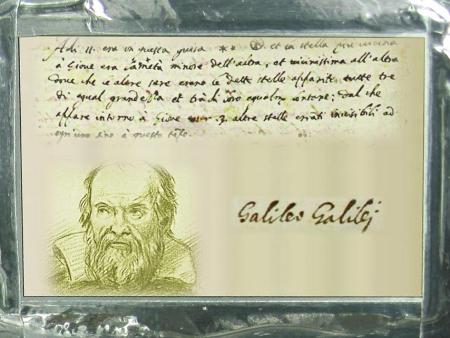 Adi 11. era in questa guisa ** et la stella più vicina
à Giove era la metà minore dell'altra, et vicinissima all'altra
dove che le altre sere erano le dette stelle apparite tutte tre
di egual grandezza et trà di loro equalm. lontane; dal che
appare intorno à Giove esser .3. altre stelle erranti invisibili ad
ogn'uno sino à questo tempo.
Galileo Galilej